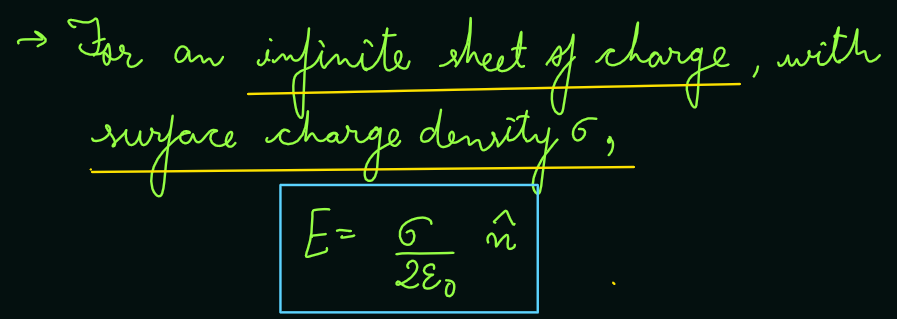 → For an infinite sheet of charge, with
surface charge density σ,
E = σ/2ε₀ n̂